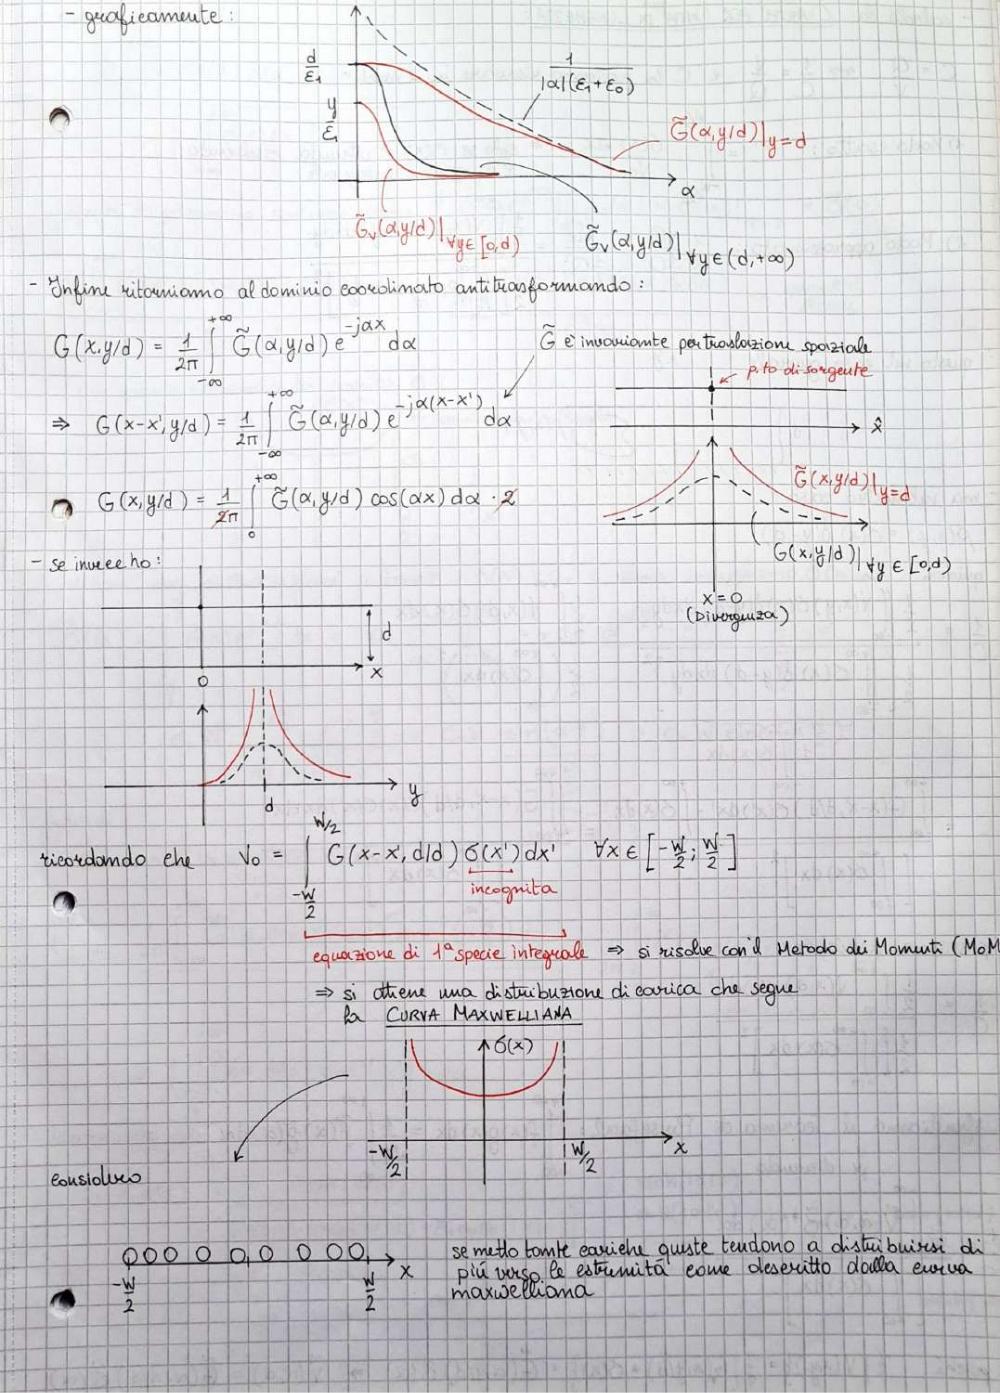 - graficamente:
d/ε₁
y/ε₁
1/(|α|(ε₁+ε₀))
G̃(α,y/d)|y=d
α
G̃ᵥ(α,y/d)|∀y∈[0,d)
G̃ᵥ(α,y/d)|∀y∈(d,+∞)
- Infine ritorniamo al dominio coordinato antitrasformando:
G(x,y/d) = 1/2π ∫_{-∞}^{+∞} G̃(α,y/d) e^{-jαx} dα
G̃ è invariante per traslazione spaziale
p.to di sorgente
⇒ G(x-x',y/d) = 1/2π ∫_{-∞}^{+∞} G̃(α,y/d) e^{-jα(x-x')} dα
x̂
G(x,y/d) = 1/2π ∫_{0}^{+∞} G̃(α,y/d) cos(αx) dα · 2
G̃(x,y/d)|y=d
G(x,y/d)|∀y∈[0,d)
x=0
(Divergenza)
- se invece ho:
d
0
x
y
d
ricordando che V₀ = ∫_{-W/2}^{W/2} G(x-x',d/d) σ(x') dx' ∀x∈[-W/2; W/2]
incognita
equazione di 1ª specie integrale ⇒ si risolve con il Metodo dei Momenti (MoM
⇒ si ottiene una distribuzione di carica che segue
la CURVA MAXWELLIANA
σ(x)
-W/2
W/2
x
considero
-W/2
W/2
x
se metto tante cariche queste tendono a distribuirsi di
più verso le estremità come descritto dalla curva
maxwelliana